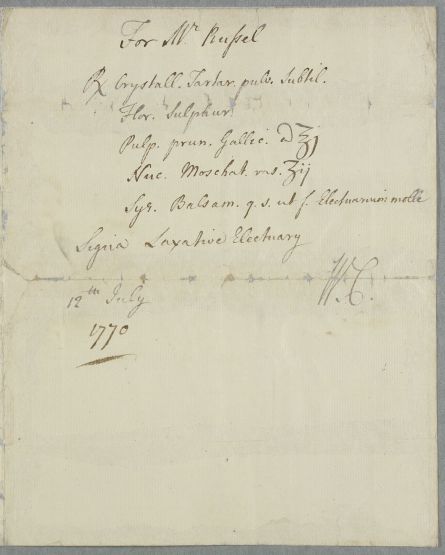 For Mr. Russel
℞ Crystall. Tartar. pulv. Subtil.
Flor. Sulphur
Pulp. prun. Gallic. a ℥j
Nuc. Moschat. ras. ʒij
Syr. Balsam. q. s. ut f. Electuarium molle
Signa Laxative Electuary
W.C.
12th July
1770